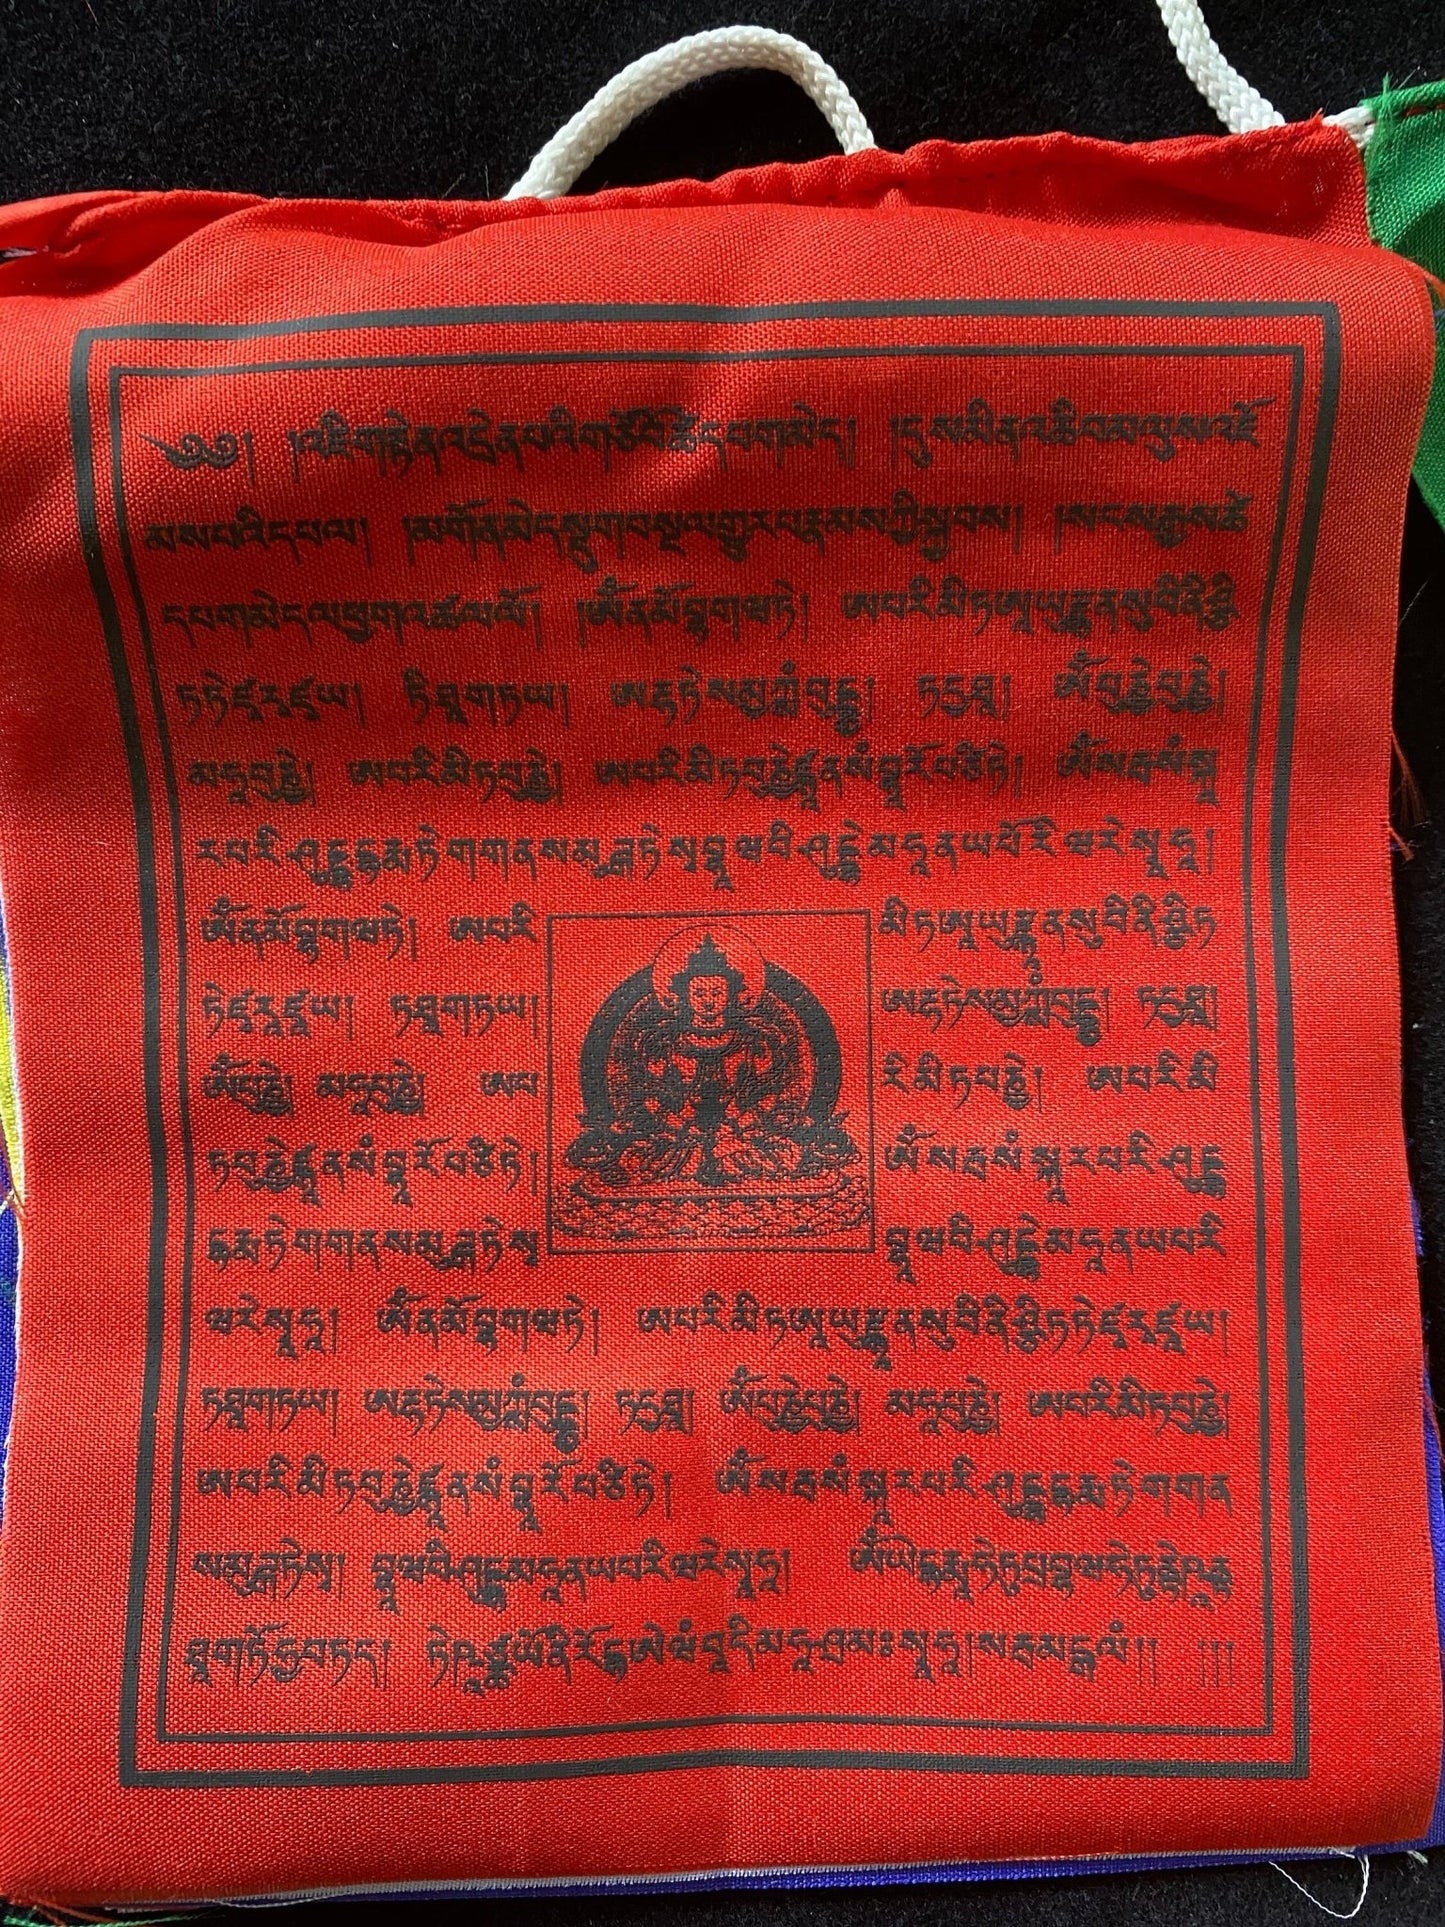 ༄༅། །འཇིགརྟེནའདྲེནཔའིགཙོབོཚེདཔགམེད། །དུསམིནའཆིབམལུསའཇོ
མསཔའིདཔལ། །མགོནམེདསྡུགབསྔལགྱུརཔརྣམསཀྱིསྐྱབས། །སངསརྒྱསཚེ
དཔགམེདལཕྱགའཚལལོ། །ཨོཾནམོབྷགཝཏེ། ཨཔརིམིཏཨཱཡུརྫྙནསུབིནིཤྩི
ཏཏེཛོརཱཛཱཡ། ཏཐཱགཏཡ། ཨརྷཏེསམྱཀྶཾབུདྡྷ། ཏདྱཐཱ། ཨོཾཔུཎྱེཔུཎྱེ།
མཧཱཔུཎྱེ། ཨཔརིམིཏཔུཎྱེ། ཨཔརིམིཏཔུཎྱེཛྙཱནསཾབྷཱརོཔཙིཏེ། ཨོཾསརྦསཾསྐཱ
རཔརིཤུདྡྷདྷརྨཏེགགནསམུངྒཏེསྭབྷཱཝབིཤུདྡྷེམཧཱནཡཔརིཝརེསྭཱཧཱ།
ཨོཾནམོབྷགཝཏེ། ཨཔརི མིཏཨཱཡུརྫྙནསུབིནིཤྩིཏ
ཏེཛོརཱཛཱཡ། ཏཐཱགཏཡ། ཨརྷཏེསམྱཀྶཾབུདྡྷ། ཏདྱཐཱ།
ཨོཾཔུཎྱེ། མཧཱཔུཎྱེ། ཨཔ རིམིཏཔཎྱེ། ཨཔརིམི
ཏཔུཎྱེཛྙཱནསཾབྷཱརོཔཙིཏེ། ཨོཾསརྦསཾསྐཱརཔརིཤུདྡྷ
དྷརྨཏེགགནསམུངྒཏེསྭ བྷཱཝབིཤུདྡྷེམཧཱནཡཔརི
ཝརེསྭཱཧཱ། ཨོཾནམོབྷགཝཏེ། ཨཔརིམིཏཨཱཡུརྫྙཱནསུབིནིཤྩིཏཏེཛོརཱཛཱཡ།
ཏཐཱགཏཡ། ཨརྷཏེསམྱཀྶཾབུདྡྷ། ཏདྱཐཱ། ཨོཾཔུཎྱེཔུཎྱེ། མཧཱཔུཎྱེ། ཨཔརིམིཏཔུཎྱེ།
ཨཔརིམིཏཔུཎྱེཛྙཱནསཾབྷཱརོཔཙིཏེ། ཨོཾསརྦསཾསྐཱརཔརིཤུདྡྷདྷརྨཏེགགན
སམུངྒཏེསྭ། བྷཱཝབིཤུདྡྷམཧཱནཡཔརིཝརེསྭཱཧཱ། ཨོཾཡེདྷརྨཱཧེཏུཔྲབྷཝཧེཏུནྟེཥཱནྟ
ཐཱགཏོཧྱབཏད། ཏེཥཱཉྩཡོནིརོདྷཨེཝཾབཱདིམཧཱཤྲམཎཿསྭཱཧཱ།སརྦམངྒལཾ།། །།།